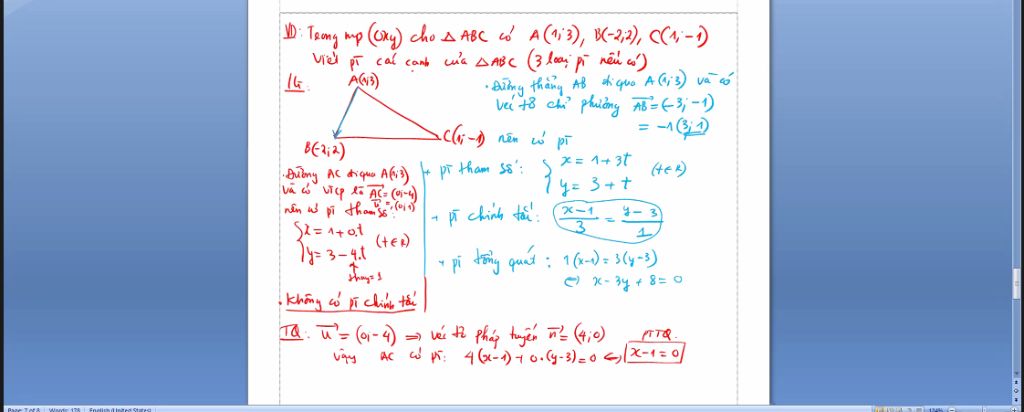 VD: Trong mp (Oxy) cho △ ABC có A(1;3), B(-2;2), C(1;-1)
Viết pt các cạnh của △ABC (3 loại pt nếu có)
A(1;3)
B(-2;2)
C(1;-1)
. Đường thẳng AB đi qua A(1;3) và có
véc tơ chỉ phương AB→ = (-3;-1)
= -1(3;1)
nên có pt
+ pt tham số: { x = 1+3t
y = 3+t (t∈R)
+ pt chính tắc: (x-1)/3 = (y-3)/1
+ pt tổng quát: 1(x-1) = 3(y-3)
⇔ x-3y+8=0
. Đường AC đi qua A(1;3)
và có vtcp là AC→ = (0;-4)
u→ = (0;1)
nên có pt tham số:
{ x = 1+0.t
y = 3-4.t (t∈R)
. Không có pt chính tắc
TQ: u→ = (0;-4) ⇒ véc tơ pháp tuyến n→ = (4;0)
Vậy AC có pt: 4(x-1)+0.(y-3)=0 ⇔ x-1=0
PTTQ.
Page: 7 of 8 Words: 178 English (United States)
124%